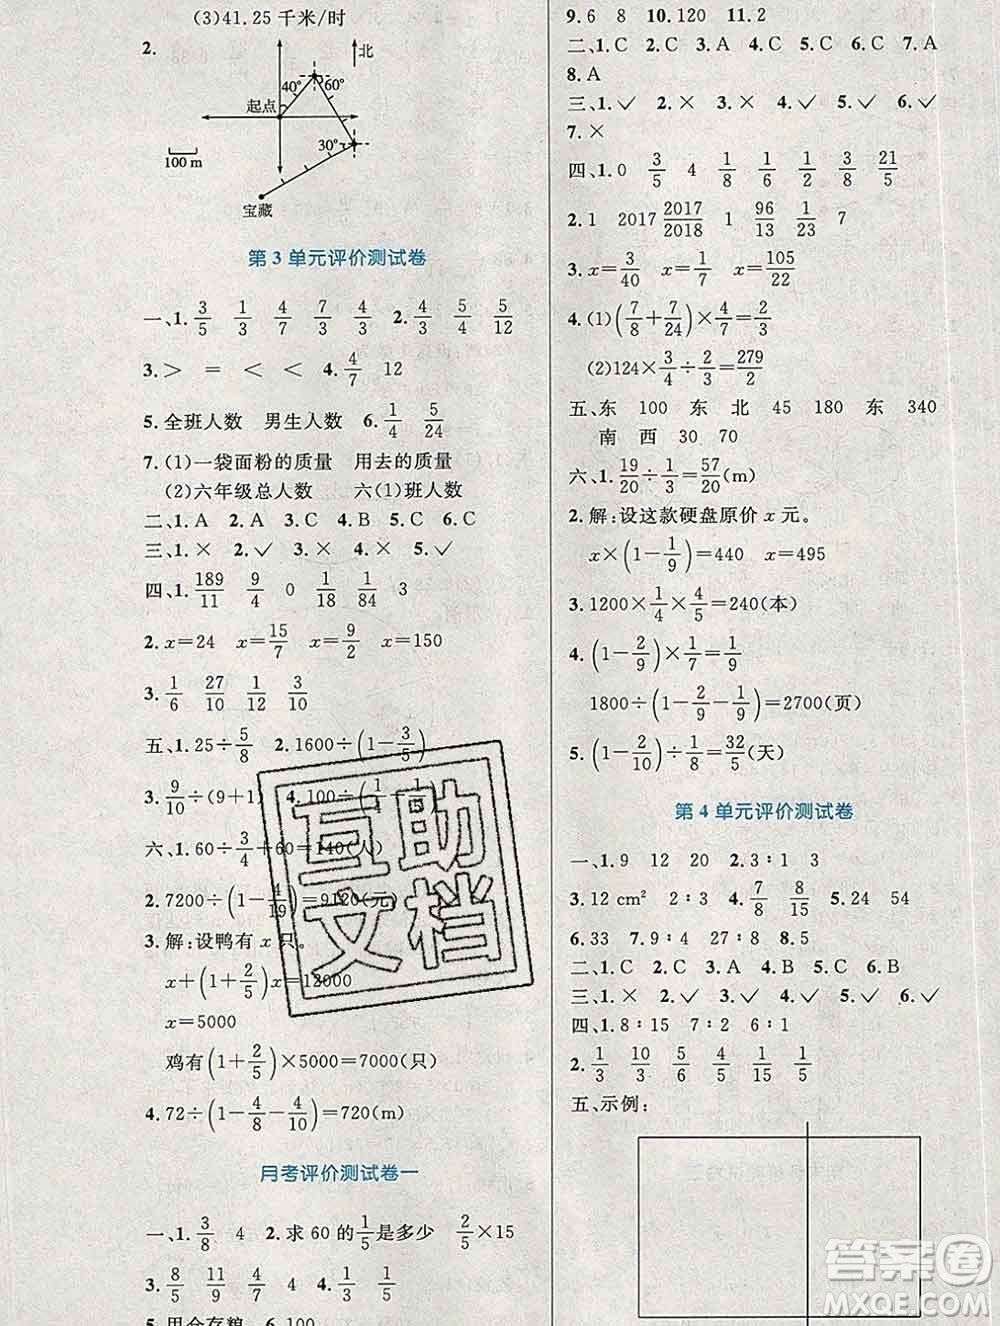 (3)41.25 千米/时
2.
北
40°
60°
起点
30°
100 m
宝藏
第 3 单元评价测试卷
一、1. 3/5 1/3 4/7 7/3 4/3 2. 4/3 5/4 5/12
3. > = < < 4. 4/7 12
5. 全班人数 男生人数 6. 1/4 5/24
7. (1)一袋面粉的质量 用去的质量
(2)六年级总人数 六(1)班人数
二、1. A 2. A 3. C 4. B 5. C 6. C
三、1. × 2. ✓ 3. ✓ 4. ✓ 5. ✓
四、1. 189/11 9/4 0 1/18 1/84 3
2. x=24 x=15/7 x=9/2 x=150
3. 1/6 27/10 1/12 3/10
五、1. 25÷5/8 2. 1600÷(1-3/5)
3. 9/10÷(9+1) 4. 100÷
六、1. 60÷3/4+60=140(人)
2. 7200÷(1-4/19)=9120(元)
3. 解:设鸭有 x 只。
x+(1+2/5)x=12000
x=5000
鸡有(1+2/5)×5000=7000(只)
4. 72÷(1-4/8-4/10)=720(m)
月考评价测试卷一
一、1. 3/8 4 2. 求 60 的1/5是多少 2/5×15
3. 5/8 11/9 4/7 4 4. 1/3 4/5
5. 甲仓存粮 6. 100
9. 6 8 10. 120 11. 2
二、1. C 2. C 3. A 4. C 5. C 6. C 7. A
8. A
三、1. ✓ 2. × 3. × 4. ✓ 5. ✓ 6. ✓
7. ×
四、1. 0 3/5 4 1/8 1/6 1/2 3/8 21/5
2. 1 2017 2017/2018 1 96/13 1/23 7
3. x=3/40 x=1/7 x=105/22
4. (1)(7/8+7/24)×4/7=2/3
(2)124×3/4÷2/3=279/2
五、东 100 东 北 45 180 东 340
南 西 30 70
六、1. 19/20÷1/3=57/20(m)
2. 解:设这款硬盘原价 x 元。
x×(1-1/9)=440 x=495
3. 1200×1/4×4/5=240(本)
4. (1-2/9)×1/7=1/9
1800÷(1-2/9-1/9)=2700(页)
5. (1-2/10)÷1/8=32/5(天)
第 4 单元评价测试卷
一、1. 9 12 20 2. 3∶1 3
3. 12 cm² 4. 7/8 8/15 5. 24 54
6. 33 7. 9∶4 27∶8 8. 5
二、1. C 2. C 3. A 4. A 5. B 6. C
三、1. × 2. ✓ 3. ✓ 4. ✓ 5. ✓ 6. ✓
四、1. 8∶15 7∶2 6∶1
2. 1/3 10/3 5/6 4/5 1/3
五、示例:
互助
文档
答案圈
MXQE.COM